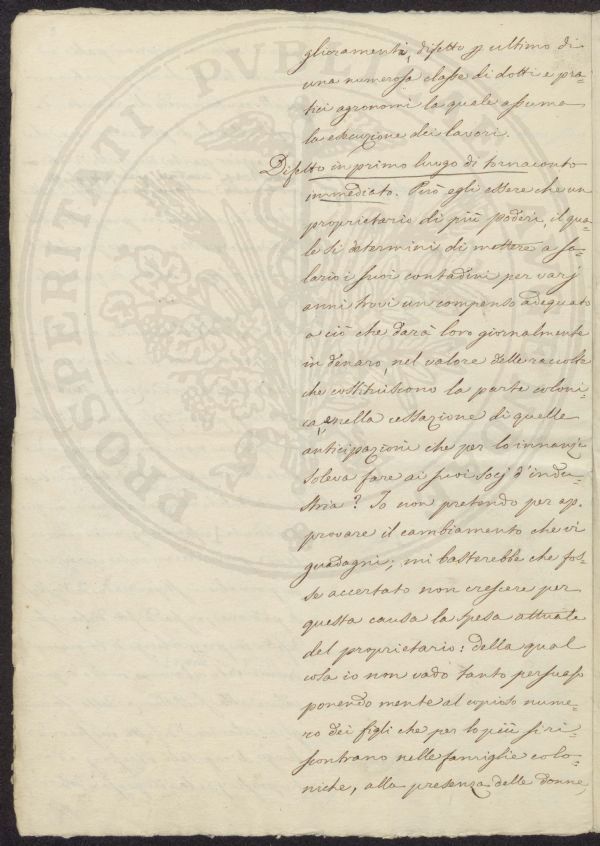 PROSPERITATI PVBLI
glioramenti, difetto p ultimo di
una numerosa classe di dotti e pra=
tici agronomi la quale assuma
la esecuzione dei lavori.
Difetto in primo luogo di tornaconto
immediato. Può egli essere che un
proprietario di più poderi, il qua=
le si determini di mettere a sa=
lario i suoi contadini per varj
anni trovi un compenso adeguato
a ciò che darà loro giornalmente
in denaro, nel valore delle raccolte
che costituiscono la parte coloni=
ca, e nella cessazione di quelle
anticipazioni che per lo innanzi
soleva fare ai suoi socj d'indu=
stria? Io non pretendo per ap=
provare il cambiamento che vi
guadagni; mi basterebbe che fos=
se accertato non crescere per
questa causa la spesa attuale
del proprietario: della qual
cosa io non vado tanto persuaso
ponendo mente al copioso nume=
ro dei figli che per lo più si ri=
scontrano nelle famiglie colo=
niche, alla presenza delle donne,